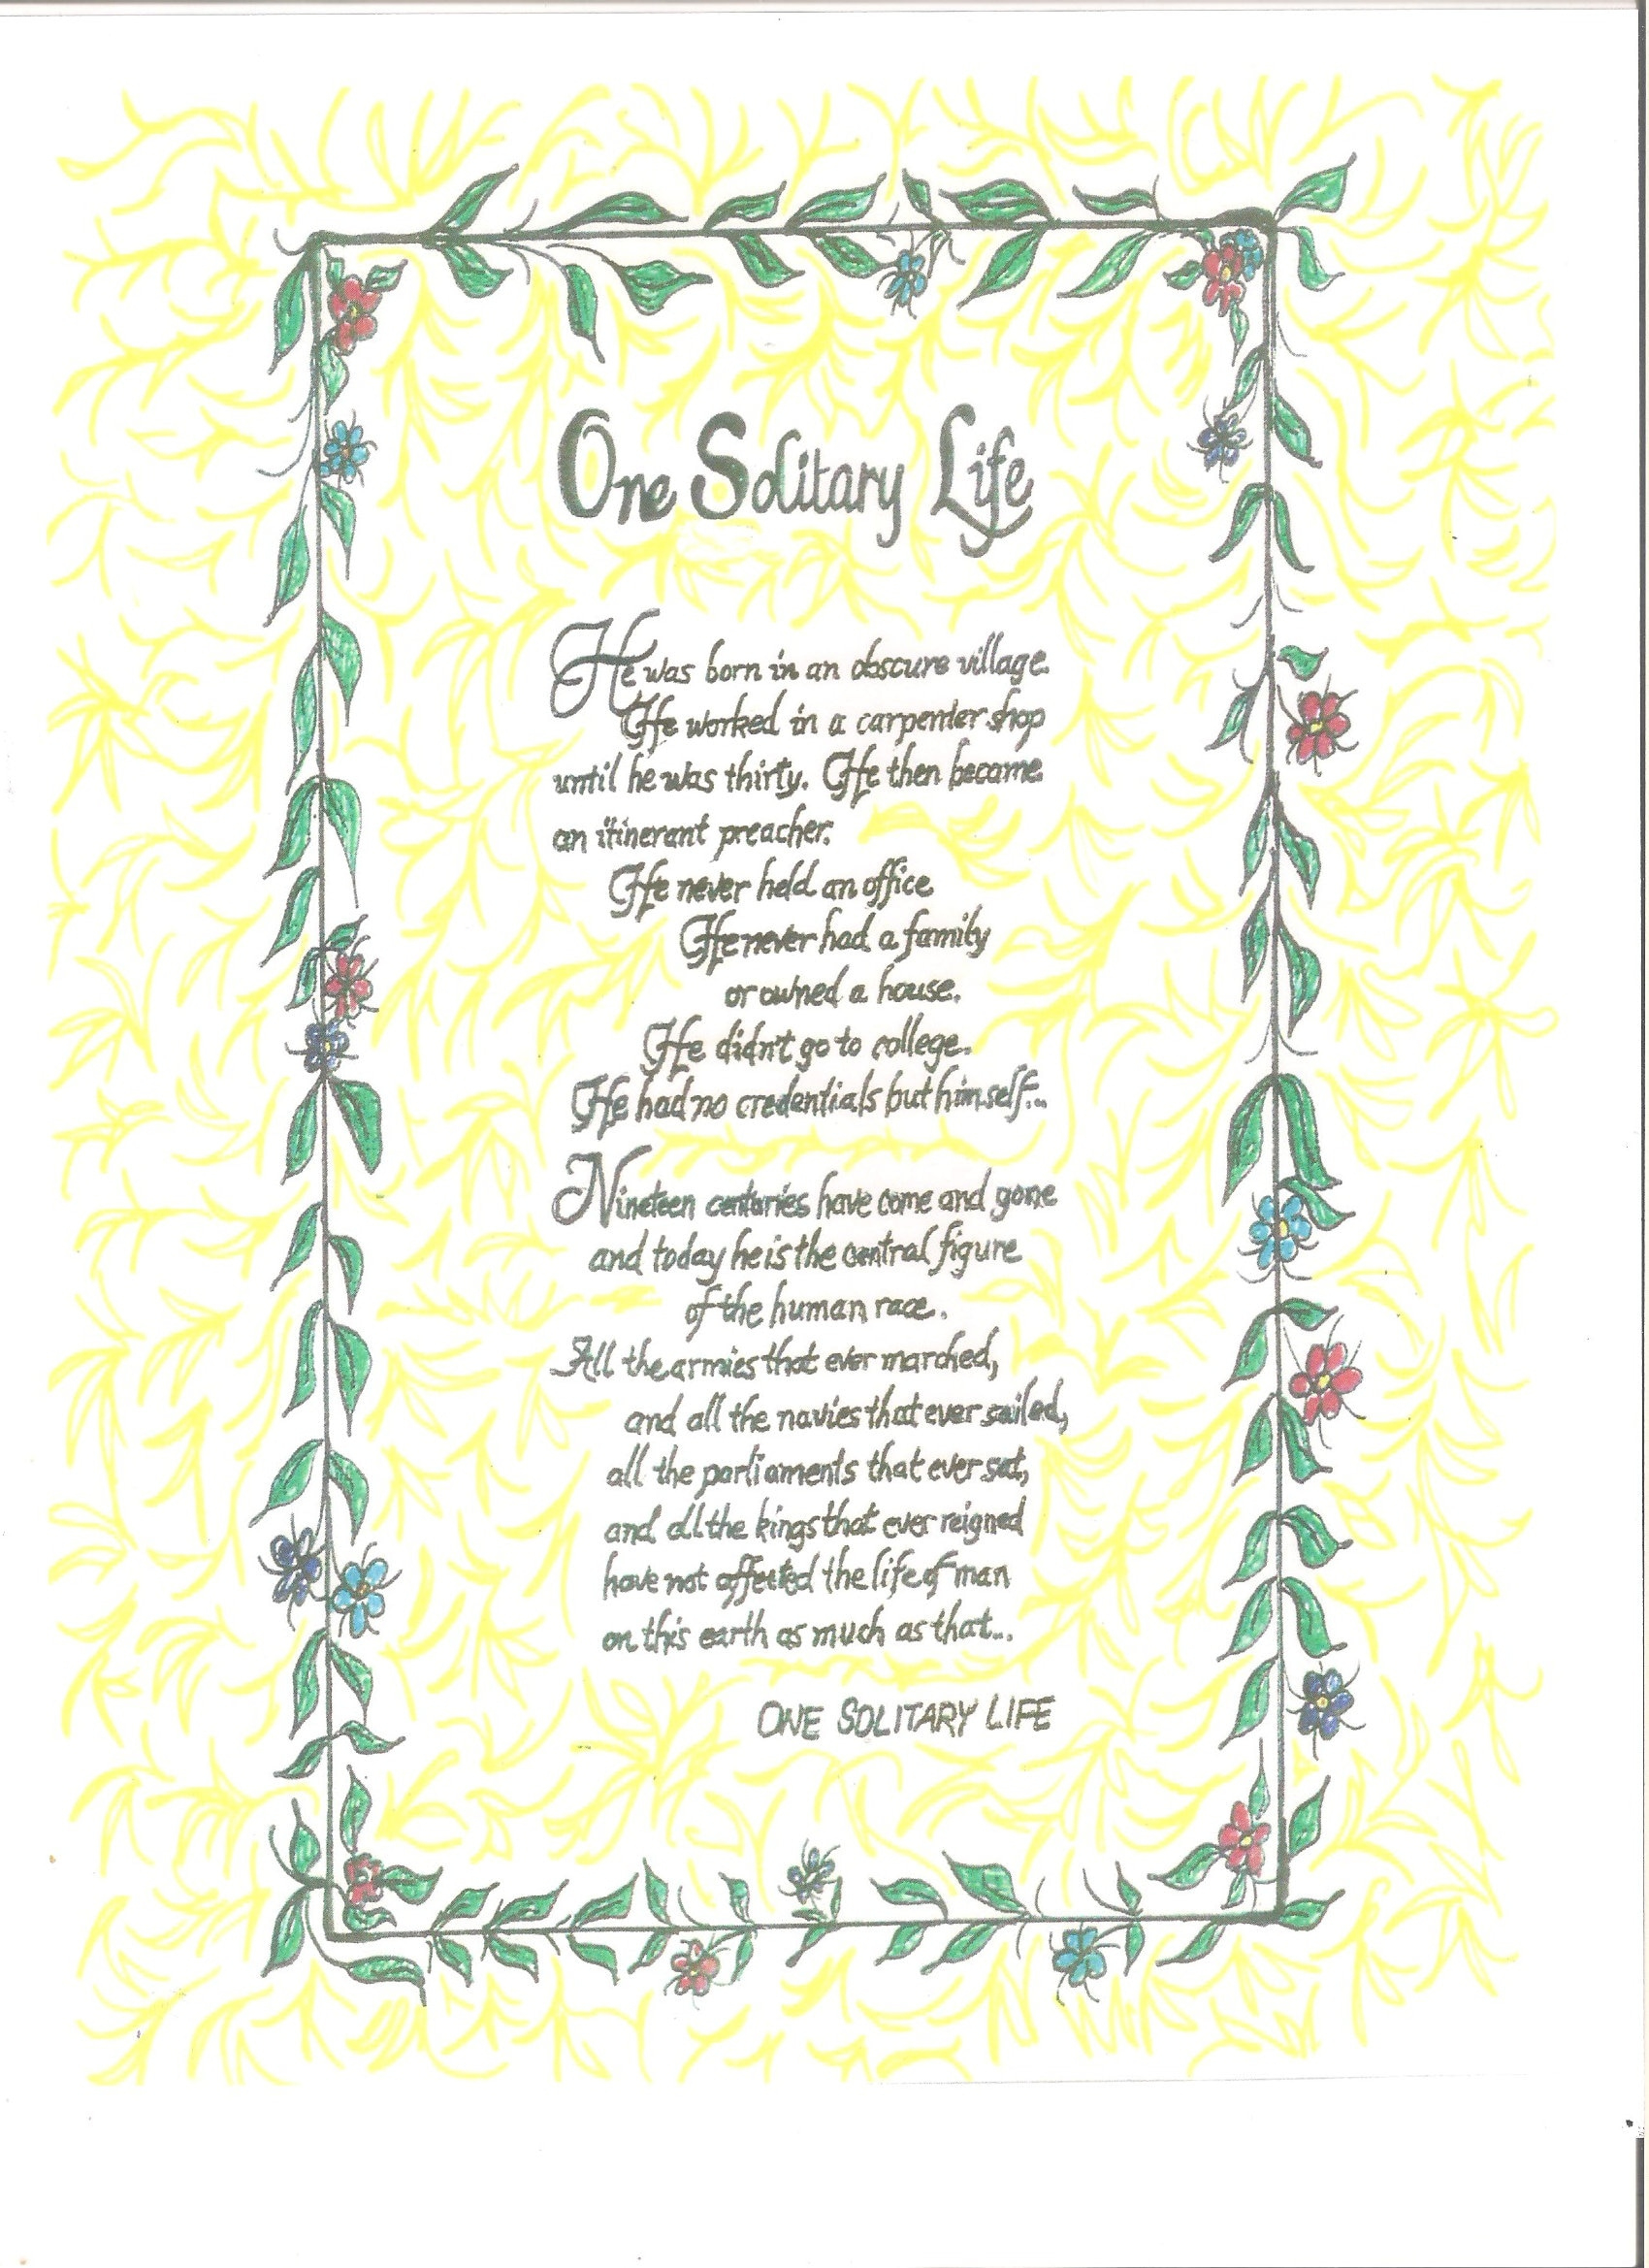 One Solitary Life
He was born in an obscure village.
He worked in a carpenter shop
until he was thirty. He then became
an itinerant preacher.
He never held an office
He never had a family
or owned a house.
He didn't go to college.
He had no credentials but himself...
Nineteen centuries have come and gone
and today he is the central figure
of the human race.
All the armies that ever marched,
and all the navies that ever sailed,
all the parliaments that ever sat,
and all the kings that ever reigned
have not affected the life of man
on this earth as much as that...
ONE SOLITARY LIFE